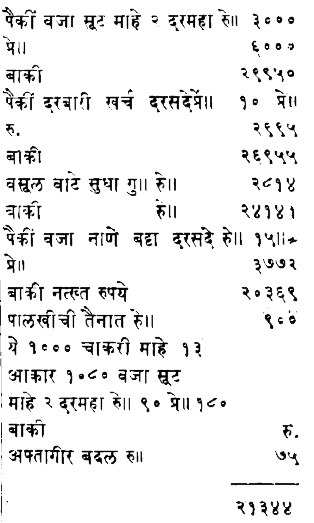 पैकीं वजा सूट माहे २ दरमहा रु॥ ३०००
प्रे॥ ६०००
बाकी २९९५०
पैकीं दरबारी खर्च दरसदेप्रें॥ १० प्रे॥
रु. २९९५
बाकी २६९५५
वसूल वाटे सुधा गु॥ रु॥ २८१४
बाकी रु॥ २४१४१
पैकीं वजा नाणे बट्टा दरसदे रु॥ १५॥=
प्रे॥ ३७७२
बाकी नख्त रुपये २०३६९
पालखीची तैनात रु॥ ९००
ये १००० चाकरी माहे १३
आकार १०८० वजा सूट
माहे २ दरमहा रु॥ ९० प्रे॥ १८०
बाकी रु.
अफ्तागीर बदल रु॥ ७५
२१३४४